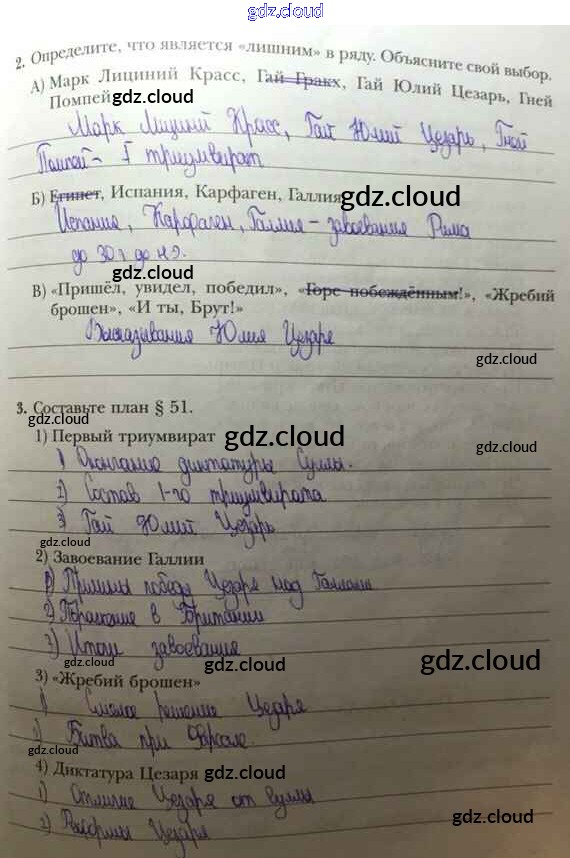 gdz.cloud
gdz.cloud
2. Определите, что является «лишним» в ряду. Объясните свой выбор.
А) Марк Лициний Красс, Гай Гракх, Гай Юлий Цезарь, Гней
Помпей gdz.cloud gdz.cloud
Марк Лициний Красс, Гай Юлий Цезарь, Гней
Помпей – I триумвират
Б) Египет, Испания, Карфаген, Галлия gdz.cloud
Испания, Карфаген, Галлия – завоевания Рима
до 30 г до н.э.
gdz.cloud
В) «Пришёл, увидел, победил», «Горе побеждённым!», «Жребий
брошен», «И ты, Брут!»
Высказывания Юлия Цезаря
gdz.cloud
3. Составьте план § 51.
1) Первый триумвират gdz.cloud gdz.cloud
1) Окончание диктатуры Суллы.
2) Состав 1-го триумвирата
3) Гай Юлий Цезарь
gdz.cloud
2) Завоевание Галлии
1) Причины победы Цезаря над Галлами
2) Поражение в Британии
3) Итоги завоевания
gdz.cloud gdz.cloud gdz.cloud
3) «Жребий брошен»
1) Смелое решение Цезаря
2) Битва при Фарсале.
gdz.cloud
4) Диктатура Цезаря gdz.cloud
1) Отличие Цезаря от Суллы
2) Реформы Цезаря
gdz.cloud